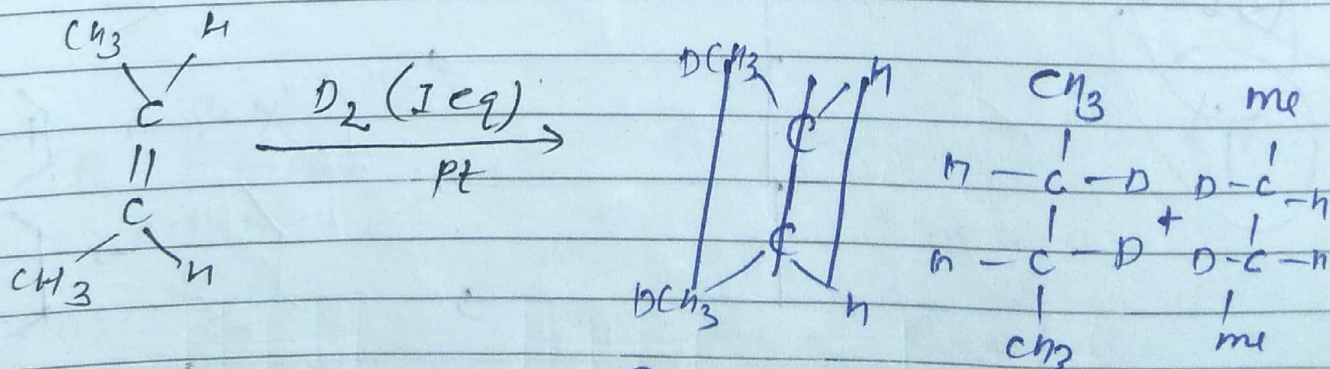 CH3 H
C
||
C
CH3 H
D2 (I eq)
Pt
DCH3 H
C
C
DCH3 H
CH3
H - C - D
H - C - D
CH3
+
me
D - C - H
D - C - H
me